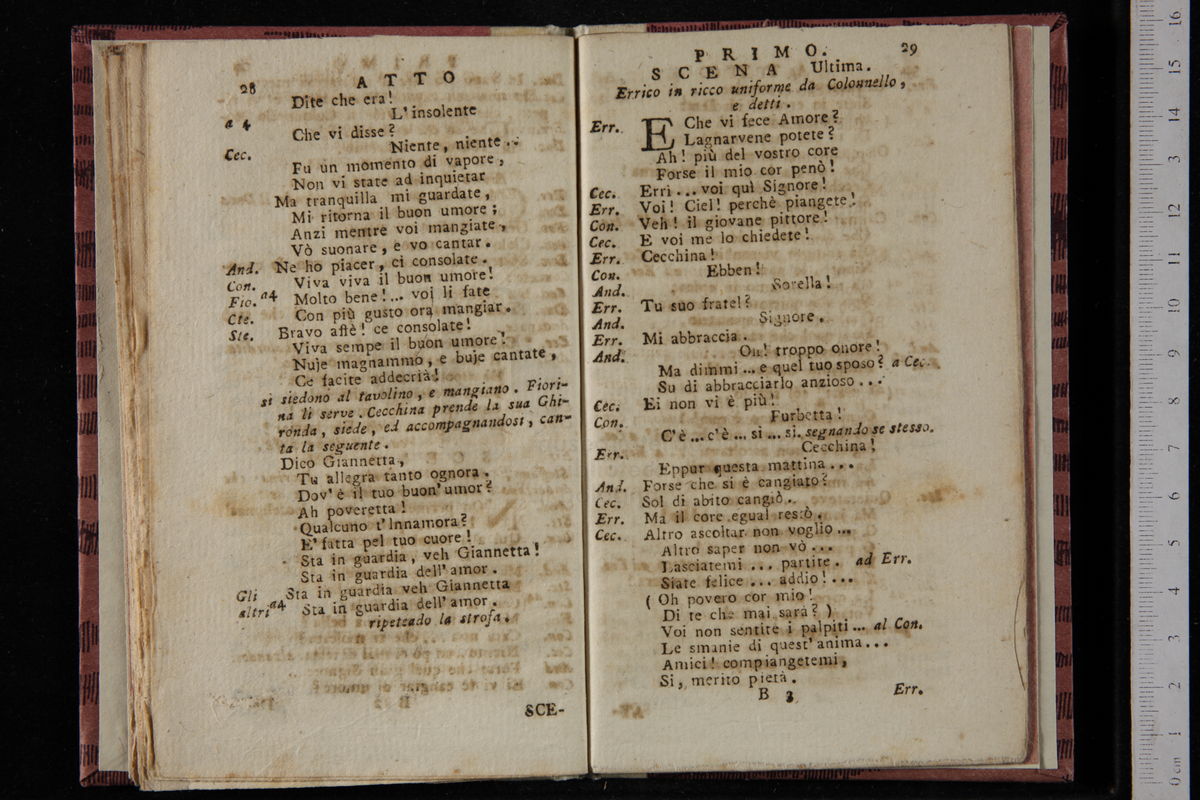 28
ATTO
Dite che era!
L'insolente
a 4
Che vi disse?
Cec. Niente, niente..
Fu un momento di vapore,
Non vi state ad inquietar
Ma tranquilla mi guardate,
Mi ritorna il buon umore;
Anzi mentre voi mangiate,
Vò suonare, e vo cantar.
And. Ne ho piacer, ci consolate.
Con. Viva viva il buon umore!
Fio. a4 Molto bene!... voi li fate
Cte. Con più gusto ora mangiar.
Ste. Bravo affè! ce consolate!
Viva sempe il buon umore!
Nuje magnammo, e buje cantate,
Ce facite addecrià!
si siedono al tavolino, e mangiano. Fiori-
na li serve. Cecchina prende la sua Ghi-
ronda, siede, ed accompagnandosi, can-
ta la seguente.
Dico Giannetta,
Tu allegra tanto ognora.
Dov'è il tuo buon'umor?
Ah poveretta!
Qualcuno t'Innamora?
E' fatta pel tuo cuore!
Sta in guardia, veh Giannetta!
Sta in guardia dell'amor.
Gli Sta in guardia veh Giannetta
altri a4 Sta in guardia dell'amor.
ripeteado la strofa.
SCE-
PRIMO. 29
SCENA Ultima.
Errico in ricco uniforme da Colonnello,
e detti.
Err. E Che vi fece Amore?
Lagnarvene potete?
Ah! più del vostro core
Forse il mio cor penò!
Cec. Erri... voi quì Signore!
Err. Voi! Ciel! perchè piangete!
Con. Veh! il giovane pittore!
Cec. E voi me lo chiedete!
Err. Cecchina!
Con. Ebben!
And. Sorella!
Err. Tu suo fratel?
And. Signore.
Err. Mi abbraccia.
And. Oh! troppo onore!
Ma dimmi... e quel tuo sposo? a Cec.
Su di abbracciarlo anzioso...
Cec. Ei non vi è più!
Con. Furbetta!
C'è... c'è... si... si. segnando se stesso.
Err. Cecchina!
Eppur questa mattina...
And. Forse che si è cangiato?
Cec. Sol di abito cangiò.
Err. Ma il core egual restò.
Cec. Altro ascoltar non voglio...
Altro saper non vò...
Lasciatemi... partite. ad Err.
Siate felice... addio!...
(Oh povero cor mio!
Di te che mai sarà?)
Voi non sentite i palpiti... al Con.
Le smanie di quest'anima...
Amici! compiangetemi,
Si, merito pietà.
B 3 Err.